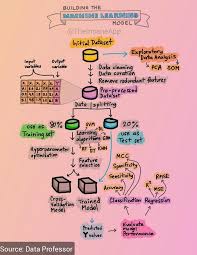 BUILDING THE
MACHINE LEARNING
MODEL
Initial Dataset
Exploratory
Data Analysis
PCA SOM
Input
variables
Output
variable
Data cleaning
Data curation
Remove redundant features
Pre-processed
Dataset
Data splitting
80%
20%
Use as
Training set
Use as
Test set
Learning
algorithms
SVM
Hyperparameter
optimization
Feature
selection
MCC
Specificity
Sensitivity
Accuracy
R²
RMSE
MSE
Cross-
validation
Model
Trained
Model
Classification
Regression
Predicted
Y values
Evaluate
model
Performance
Source: Data Professor